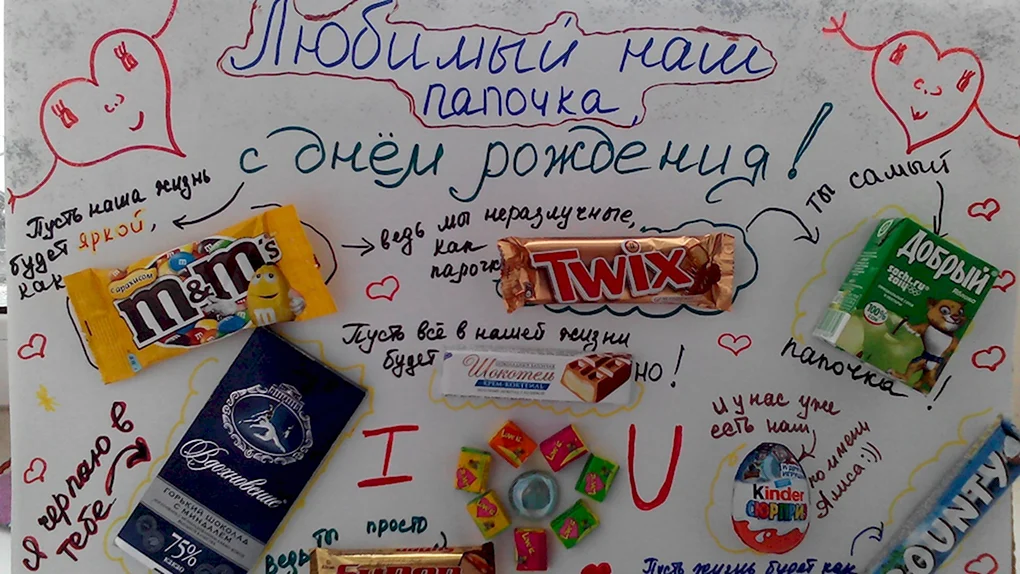 Любимый наш
папочка,
с днём рождения!
Пусть наша жизнь
будет яркой,
как
с арахисом
m&m's
ведь мы неразлучные,
как
парочка
TWIX
ты самый
Добрый
sochi.ru
2014
яблоко
100%
папочка!
Пусть всё в нашей жизни
будет
Шокотель
КРЕМ-КОКТЕЙЛЬ
но!
Я черпаю в
тебе
Вдохновение
ГОРЬКИЙ ШОКОЛАД
С МИНДАЛЕМ
75%
какао
I
Love is
U
и у нас уже
есть наш
Kinder
СЮРПРИЗ
по имени
Алиса:))
ведь ты просто
Пусть жизнь будет как
BOUNTY